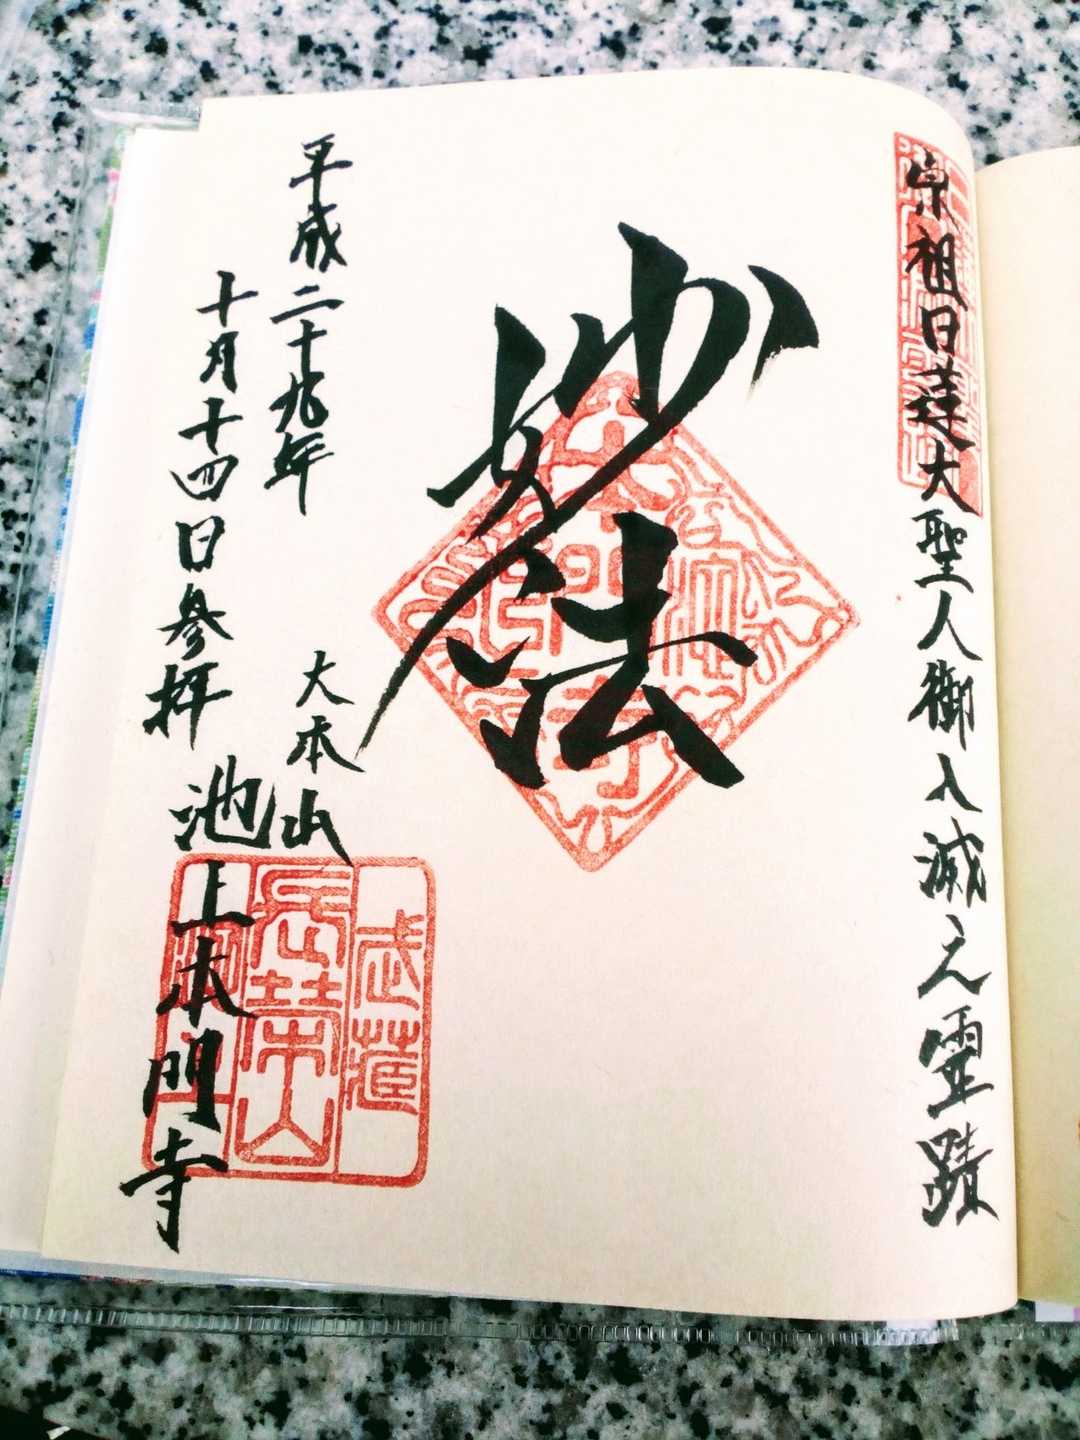 宗祖日蓮大聖人御入滅之霊蹟
妙法
平成二十九年
十月十四日参拝
大本山
池上本門寺
武蔵
長栄山